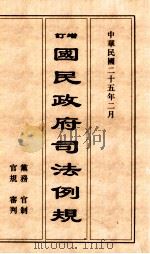 中華民國二十五年二月
增訂
國民政府司法例規
黨務 官制
官規 審判